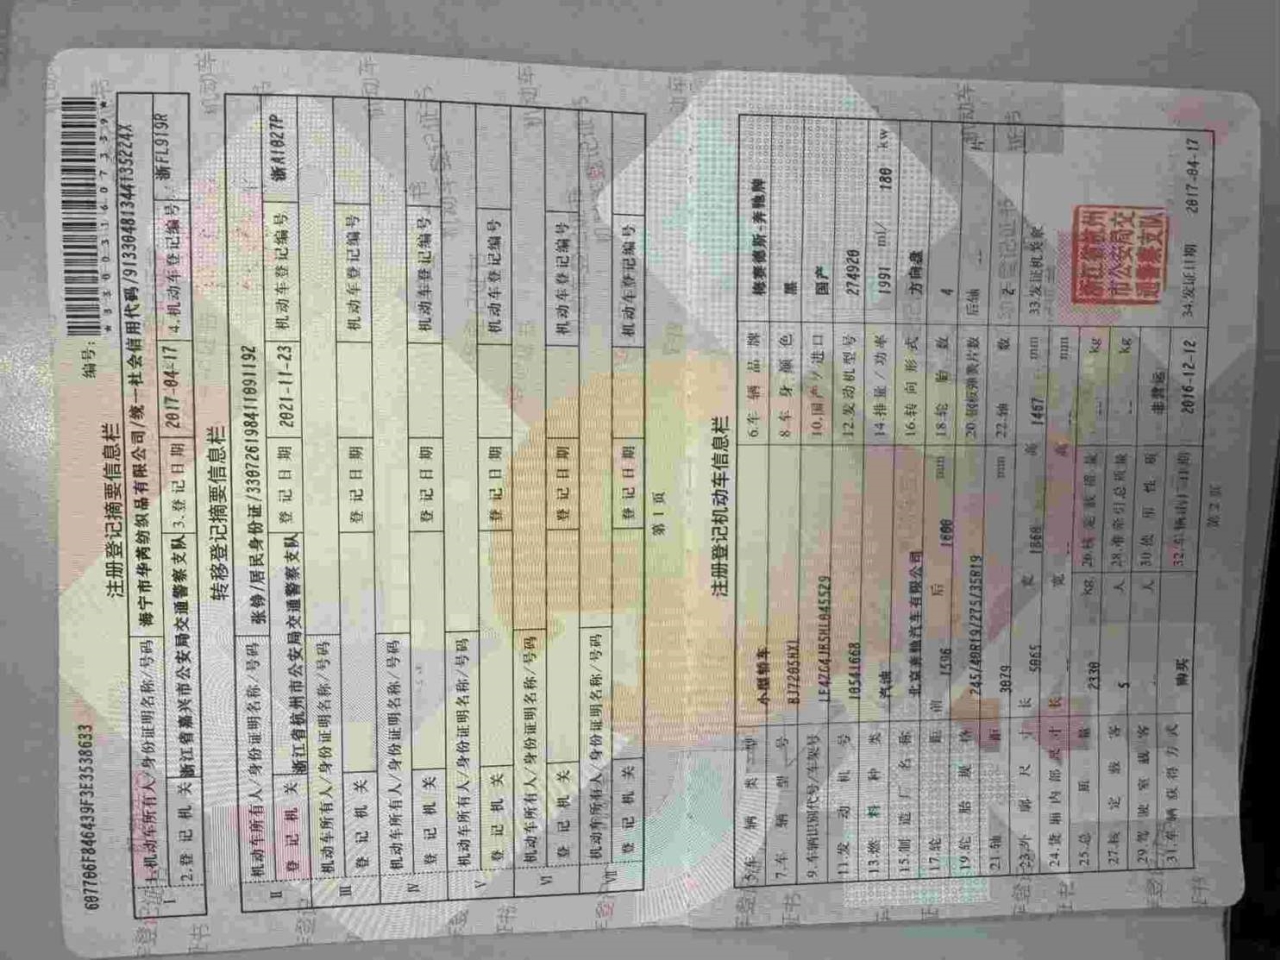 607706F846439F3E3538633
编号:
*330031607339*
注册登记摘要信息栏
I 1.机动车所有人/身份证明名称/号码 海宁市华芮纺织品有限公司/统一社会信用代码/91330481344135224X
2.登记机关 浙江省嘉兴市公安局交通警察支队 3.登记日期 2017-04-17 4.机动车登记编号 浙FL919R
转移登记摘要信息栏
II 机动车所有人/身份证明名称/号码 张铮/居民身份证/330726198411091192
登记机关 浙江省杭州市公安局交通警察支队 登记日期 2021-11-23 机动车登记编号 浙A1027P
III 机动车所有人/身份证明名称/号码
登记机关 登记日期 机动车登记编号
IV 机动车所有人/身份证明名称/号码
登记机关 登记日期 机动车登记编号
V 机动车所有人/身份证明名称/号码
登记机关 登记日期 机动车登记编号
VI 机动车所有人/身份证明名称/号码
登记机关 登记日期 机动车登记编号
VII 机动车所有人/身份证明名称/号码
登记机关 登记日期 机动车登记编号
第1页
注册登记机动车信息栏
5.车辆类型 小型轿车 6.车辆品牌 梅赛德斯-奔驰牌
7.车辆型号 8.车身颜色 黑
9.车辆识别代号/车架号 10.国产/进口 国产
11.发动机号 10541668 12.发动机型号 274920
13.燃料种类 汽油 14.排量/功率 1991 ml/ 180 kw
15.制造厂名称 北京奔驰汽车有限公司 16.转向形式 方向盘
17.轮距 前 1596 后 1600 mm 18.轮胎数 4
19.轮胎规格 245/40R19/275/35R19 20.钢板弹簧片数 后轴 -- 片
21.轴距 3079 mm 22.轴数 2
23.外廓尺寸 长 5065 宽 1860 高 1467 mm 33.发证机关章
24.货厢内部尺寸 长 -- 宽 -- 高 -- mm
25.总质量 2330 kg 26.核定载质量 -- kg
27.核定载客 5 人 28.准牵引总质量 -- kg
29.驾驶室载客 -- 人 30.使用性质 非营运
31.车辆获得方式 购买 32.车辆出厂日期 2016-12-12 34.发证日期 2017-04-17
浙江省杭州
市公安局交
通警察支队
第2页